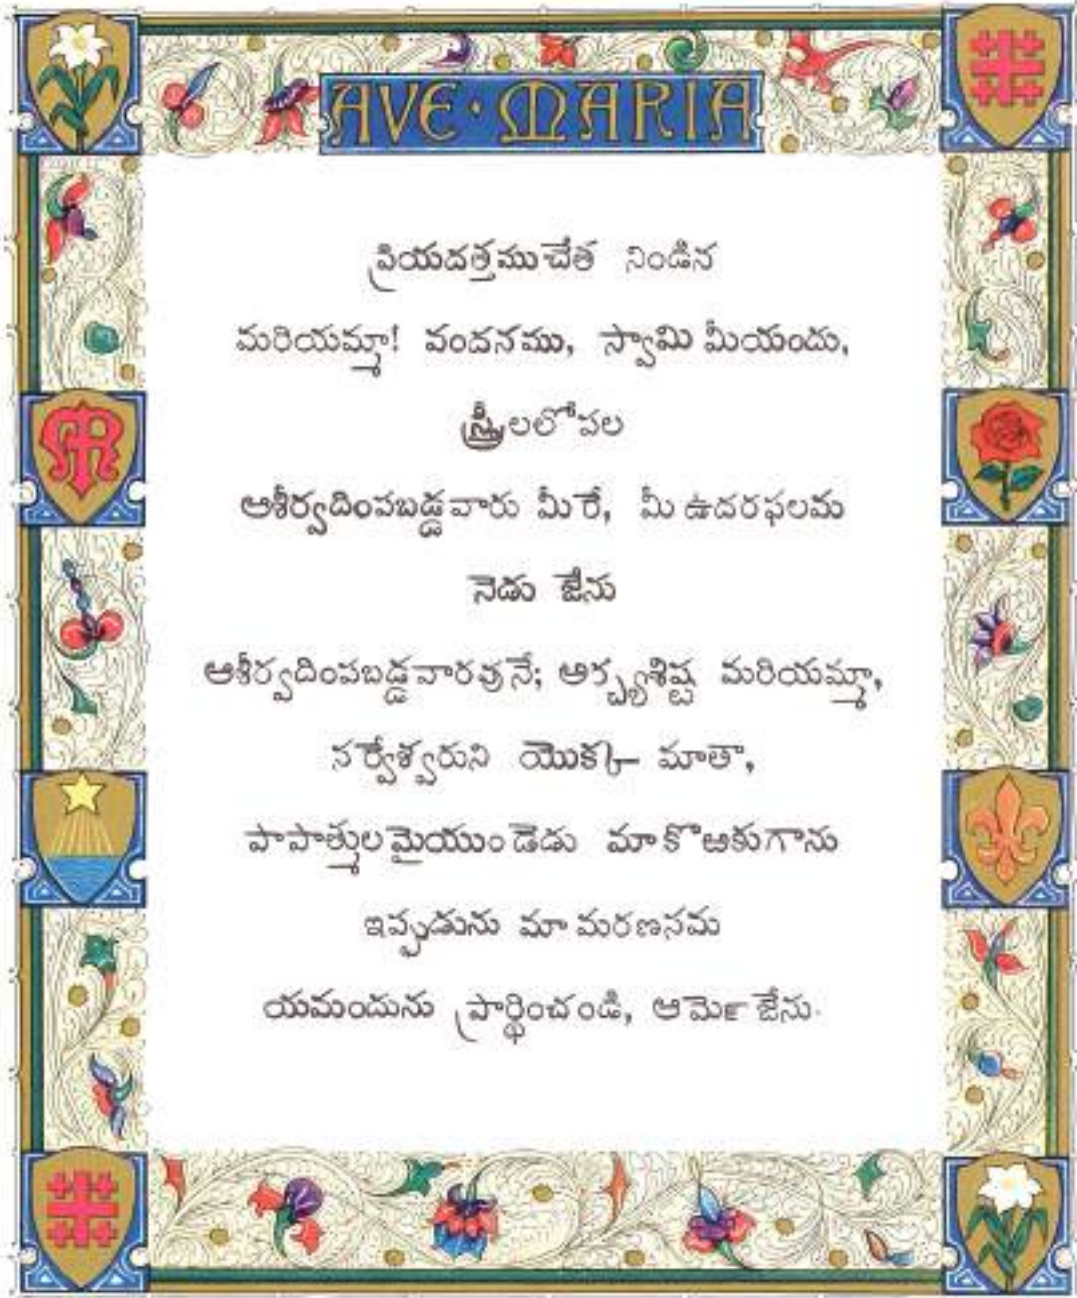 AVE · MARIA
ప్రియదత్తముచేత నిండిన
మరియమ్మా! వందనము, స్వామి మీయందు,
స్త్రీలలోపల
ఆశీర్వదింపబడ్డవారు మీరే, మీ ఉదరఫలమ
నెడు జేను
ఆశీర్వదింపబడ్డవారవునే; మరియమ్మా,
సర్వేశ్వరుని యొక్క మాతా,
పాపాత్ములమైయుండెడు మా కొఱకుగాను
ఇప్పుడును మా మరణసమ
యమందును ప్రార్థించండి, జేను.